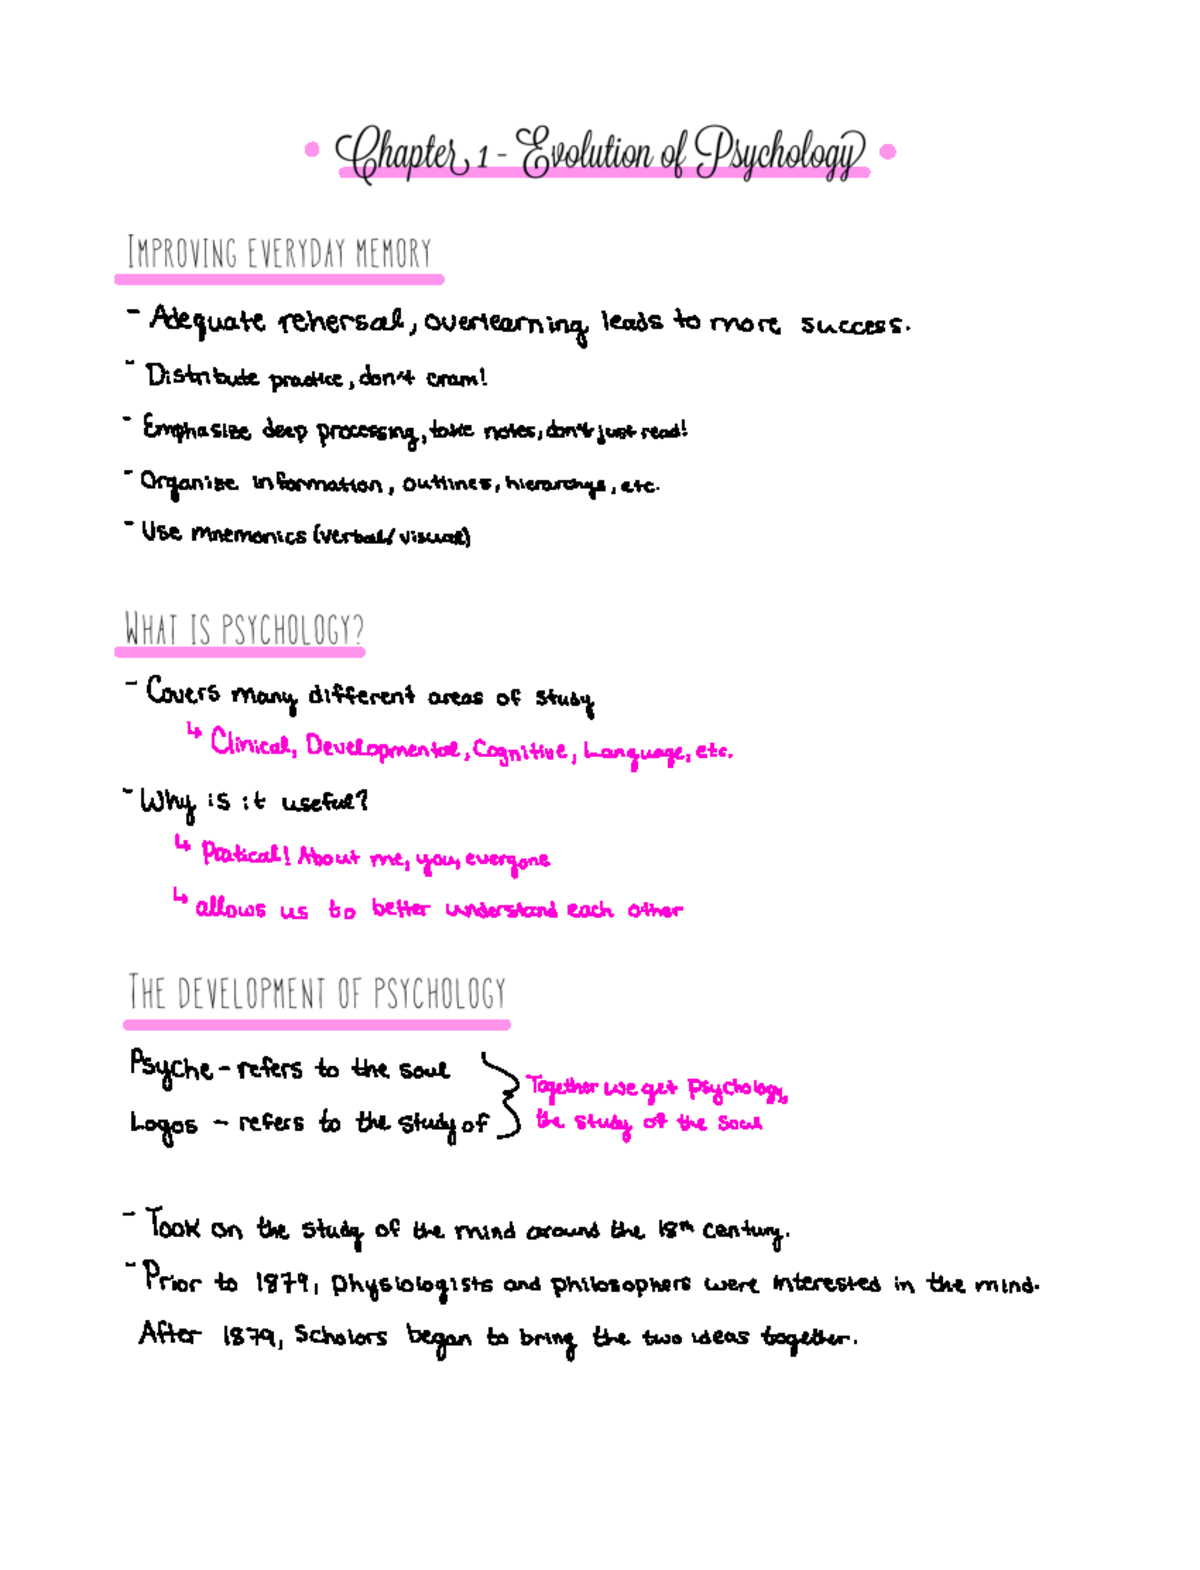 Chapter 1 - Evolution of Psychology
IMPROVING EVERYDAY MEMORY
- Adequate rehersal, overlearning leads to more success.
- Distribute practice, don't cram!
- Emphasize deep processing, take notes, don't just read!
- Organize information, outlines, hierarchys, etc.
- Use mnemonics (verbal/visual)
WHAT IS PSYCHOLOGY?
- Covers many different areas of study
↳ Clinical, Developmental, Cognitive, Language, etc.
- Why is it useful?
↳ Pratical! About me, you, everyone
↳ allows us to better understand each other
THE DEVELOPMENT OF PSYCHOLOGY
Psyche - refers to the soul
Logos - refers to the study of
Together we get Psychology,
the study of the soul
- Took on the study of the mind around the 18th century.
- Prior to 1879, physiologists and philosophers were interested in the mind.
After 1879, Scholars began to bring the two ideas together.